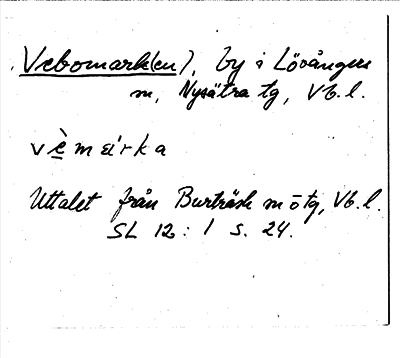 Vebomark(en), by i Lövångers
sn, Nysätra tg, Vb. l.
vè̱mɛi'rka
Uttalet från Burträsk sn o tg, Vb. l.
SL 12: 1 s. 24.